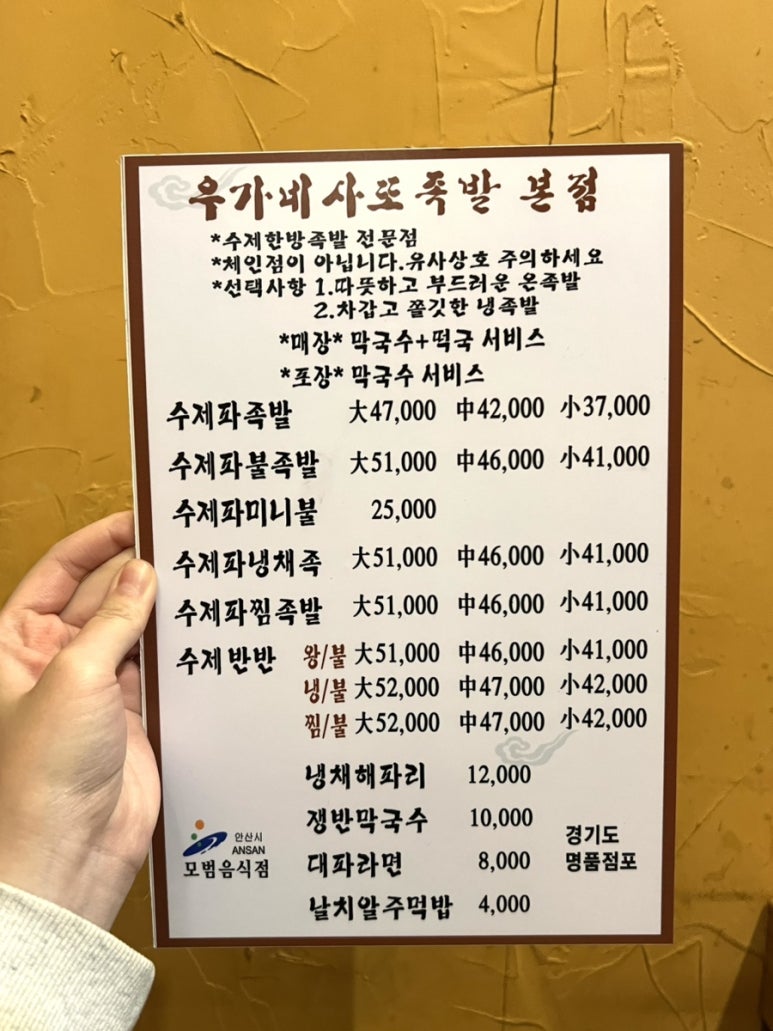 우가네사또족발 본점
*수제한방족발 전문점
*체인점이 아닙니다.유사상호 주의하세요
*선택사항 1.따뜻하고 부드러운 온족발
2.차갑고 쫄깃한 냉족발
*매장* 막국수+떡국 서비스
*포장* 막국수 서비스
수제파족발 大47,000 中42,000 小37,000
수제파불족발 大51,000 中46,000 小41,000
수제파미니불 25,000
수제파냉채족 大51,000 中46,000 小41,000
수제파찜족발 大51,000 中46,000 小41,000
수제반반 왕/불 大51,000 中46,000 小41,000
냉/불 大52,000 中47,000 小42,000
찜/불 大52,000 中47,000 小42,000
냉채해파리 12,000
쟁반막국수 10,000
대파라면 8,000
날치알주먹밥 4,000
안산시
ANSAN
모범음식점
경기도
명품점포